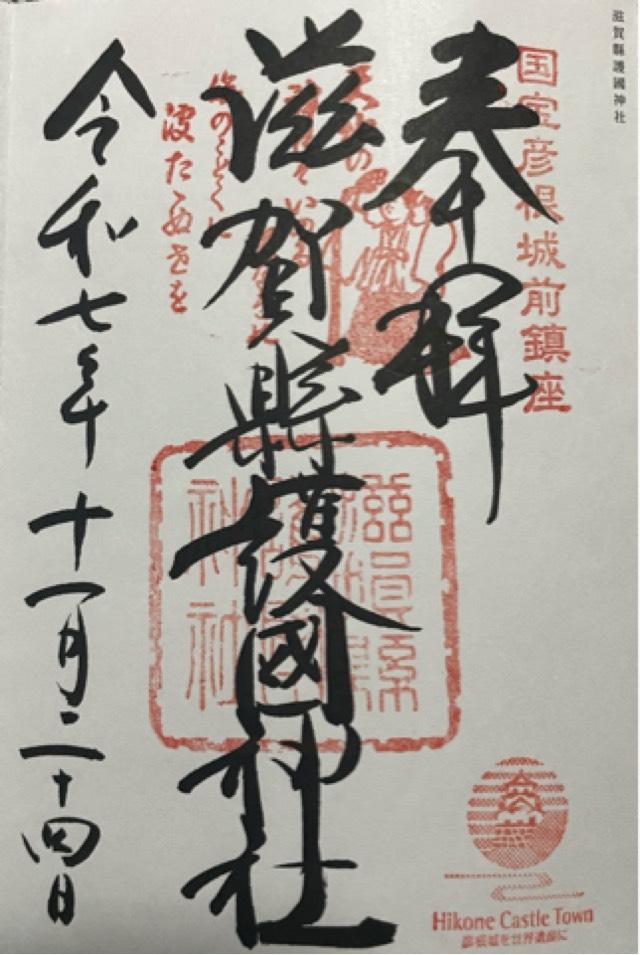 滋賀縣護國神社
国宝彦根城前鎮座
奉拝
滋賀縣護國神社
滋賀縣
護國
神社
波たぬせを
令和七年十一月二十四日
Hikone Castle Town
彦根城を世界遺産に